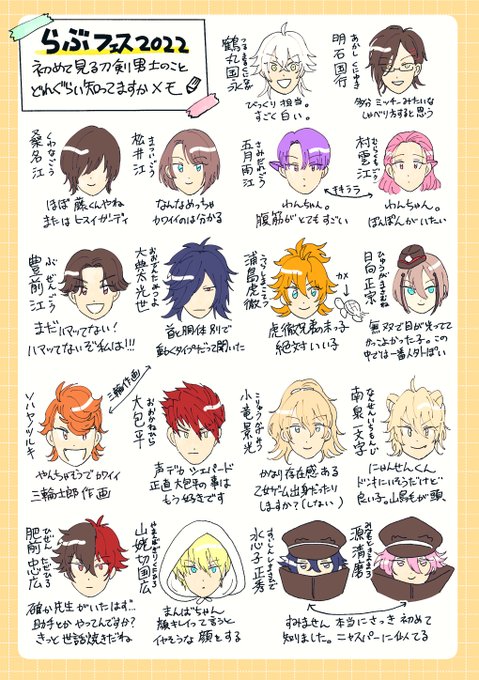 らぶフェス2022
初めて見る刀剣男士のこと
どれぐらい知ってますかメモ
鶴丸国永
つるまるくになが
びっくり担当。
すごく白い。
明石国行
あかしくにゆき
多分ミッチーみたいな
しゃべり方すると思う
桑名江
くわなごう
ほぼ藤くんやね
またはヒスイガーディ
松井江
まついごう
なんなめっちゃ
カワイイのは分かる
五月雨江
さみだれごう
わんちゃん。
腹筋がとてもすごい
村雲江
むらくもごう
わんちゃん。
ぽんぽんがいたい
豊前江
ぶぜんごう
まだハマッてない!
ハマッてないぞ私は!!!
大典太光世
おおでんたみつよ
首と胴体別で
動くタイプだって聞いた
浦島虎徹
うらしまこてつ
カメ
虎徹兄弟の末っ子
絶対いい子
日向正宗
ひゅうがまさむね
無双で目が光ってて
かっこよかった子。この
中では一番人外っぽい
ソハヤノツルキ
やんちゃそうでカワイイ
三輪士郎作画
三輪作画
大包平
おおかねひら
声デカシェパード
正直大包平の事は
もう好きです
小竜景光
こりゅうかげみつ
かなり存在感ある
乙女ゲーム出身だったり
しますか?(しない)
南泉一文字
なんせんいちもんじ
にゃんせんくん
ドンキにいそうだけど
良い子。山鳥毛が頭
肥前忠広
ひぜんただひろ
確か先生がいたはず…
助手とかやってんですか?
きっと世話焼きだね
山姥切国広
やまんばぎりくにひろ
まんばちゃん
顔キレイって言うと
イヤそうな顔をする
水心子正秀
すいしんしまさひで
源清麿
みなもときよまろ
すみません本当にさっき初めて
知りました。ニャスパーに似てる